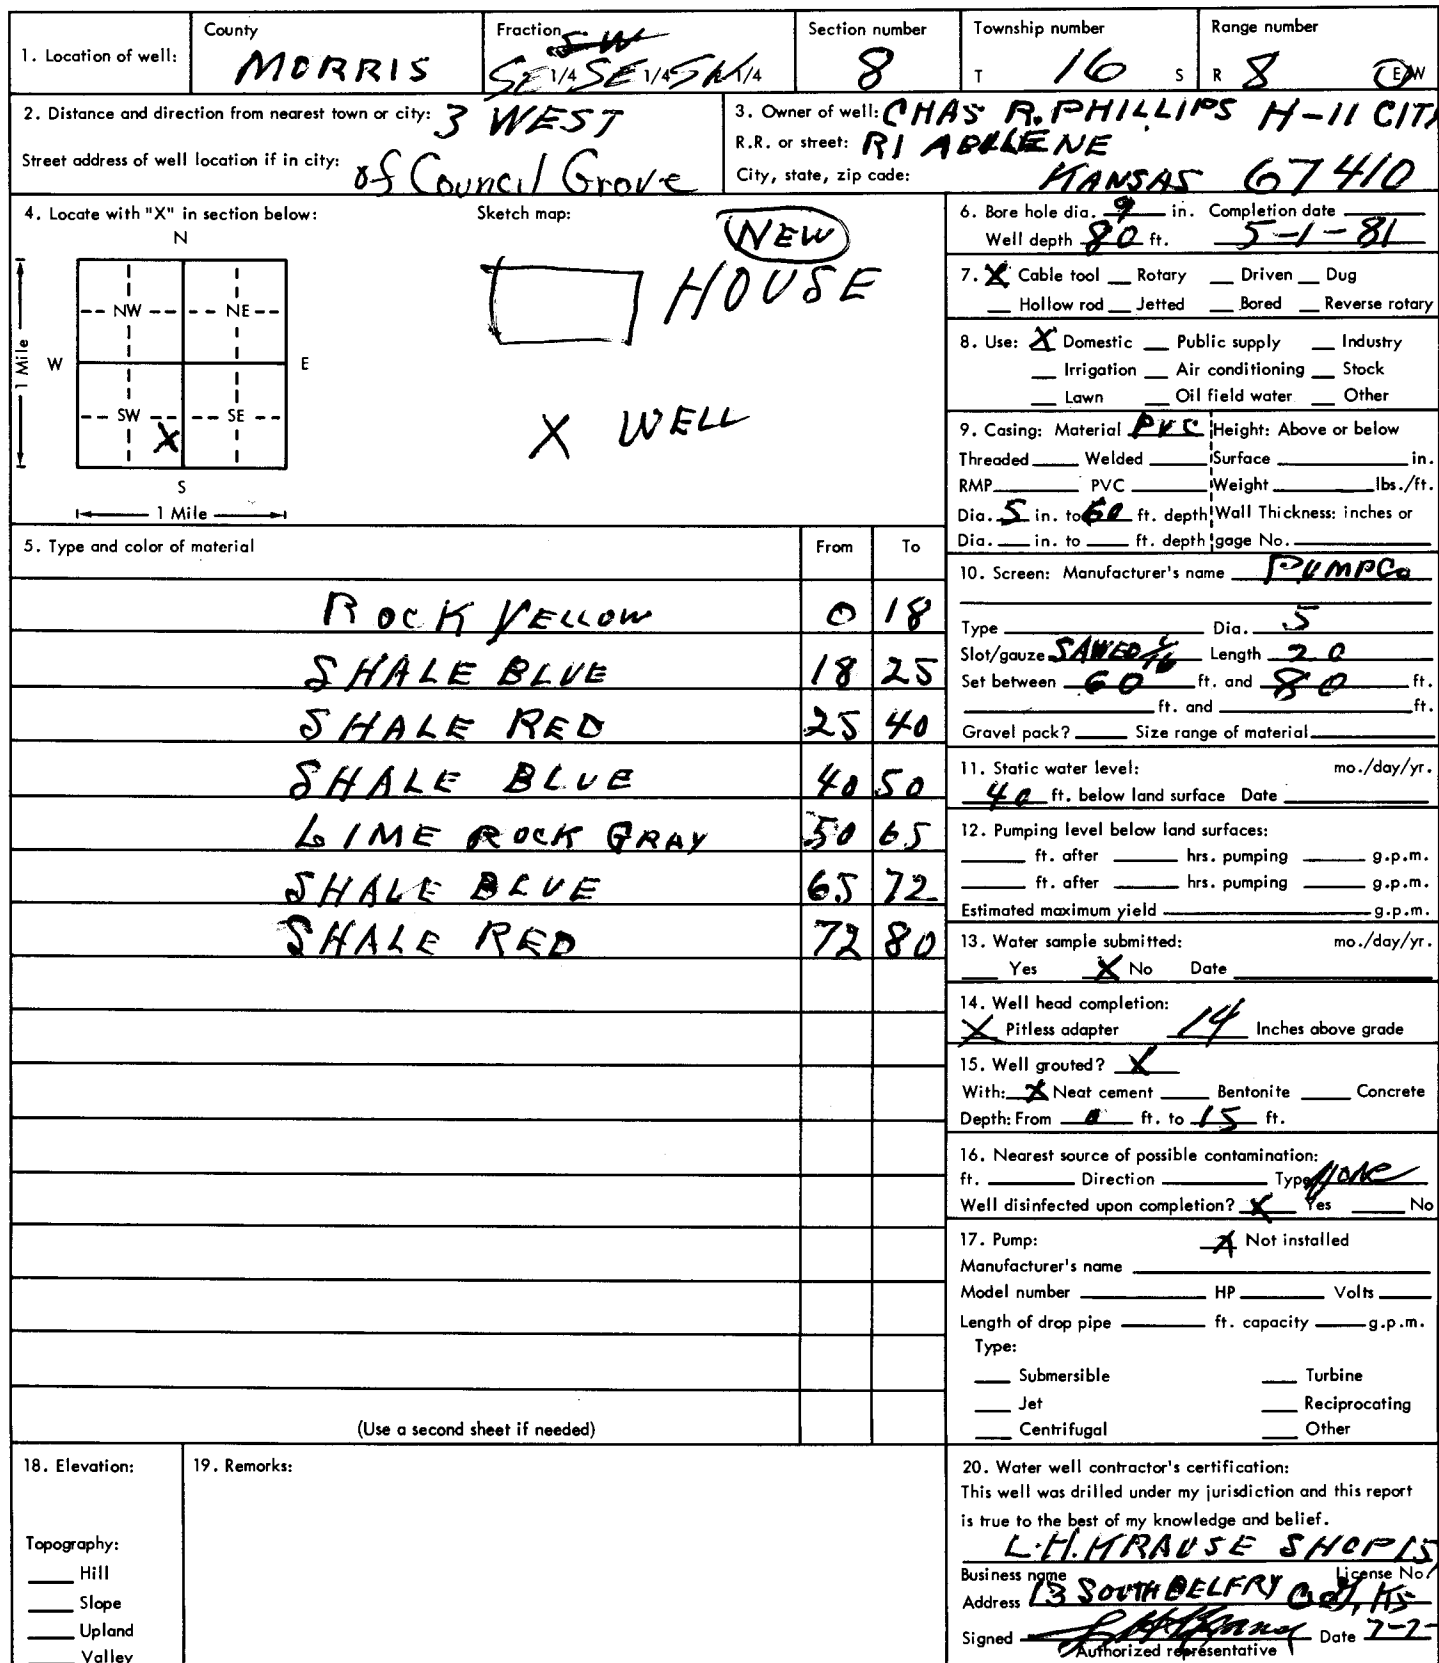 1. Location of well:
County
MORRIS
Fraction
SW
SE 1/4 SE 1/4 SW 1/4
Section number
8
Township number
T 16 S
Range number
R 8 E W
2. Distance and direction from nearest town or city: 3 WEST
Street address of well location if in city: of Council Grove
3. Owner of well: CHAS R. PHILLIPS H-11 CITY
R.R. or street: R1 ABILENE
City, state, zip code: KANSAS 67410
4. Locate with "X" in section below:
N
NW NE
W E
SW SE
X
S
1 Mile
1 Mile
Sketch map:
NEW
HOUSE
X WELL
6. Bore hole dia. 9 in. Completion date
Well depth 80 ft. 5-1-81
7. X Cable tool Rotary Driven Dug
Hollow rod Jetted Bored Reverse rotary
8. Use: X Domestic Public supply Industry
Irrigation Air conditioning Stock
Lawn Oil field water Other
9. Casing: Material PVC Height: Above or below
Threaded Welded Surface in.
RMP PVC Weight lbs./ft.
Dia. 5 in. to 60 ft. depth Wall Thickness: inches or
Dia. in. to ft. depth gage No.
5. Type and color of material From To
ROCK YELLOW 0 18
SHALE BLUE 18 25
SHALE RED 25 40
SHALE BLUE 40 50
LIME ROCK GRAY 50 65
SHALE BLUE 65 72
SHALE RED 72 80
(Use a second sheet if needed)
10. Screen: Manufacturer's name PUMP Co
Type Dia. 5
Slot/gauze SAWED 1/16 Length 20
Set between 60 ft. and 80 ft.
ft. and ft.
Gravel pack? Size range of material
11. Static water level: mo./day/yr.
40 ft. below land surface Date
12. Pumping level below land surfaces:
ft. after hrs. pumping g.p.m.
ft. after hrs. pumping g.p.m.
Estimated maximum yield g.p.m.
13. Water sample submitted: mo./day/yr.
Yes X No Date
14. Well head completion:
X Pitless adapter 14 Inches above grade
15. Well grouted? X
With: X Neat cement Bentonite Concrete
Depth: From 0 ft. to 15 ft.
16. Nearest source of possible contamination:
ft. Direction Type None
Well disinfected upon completion? X Yes No
17. Pump: X Not installed
Manufacturer's name
Model number HP Volts
Length of drop pipe ft. capacity g.p.m.
Type:
Submersible Turbine
Jet Reciprocating
Centrifugal Other
18. Elevation:
Topography:
Hill
Slope
Upland
Valley
19. Remarks:
20. Water well contractor's certification:
This well was drilled under my jurisdiction and this report
is true to the best of my knowledge and belief.
L.H. KRAUSE SHOP 15
Business name License No.
Address 13 SOUTH BELFRY Ks
Signed Date 7-7-
Authorized representative